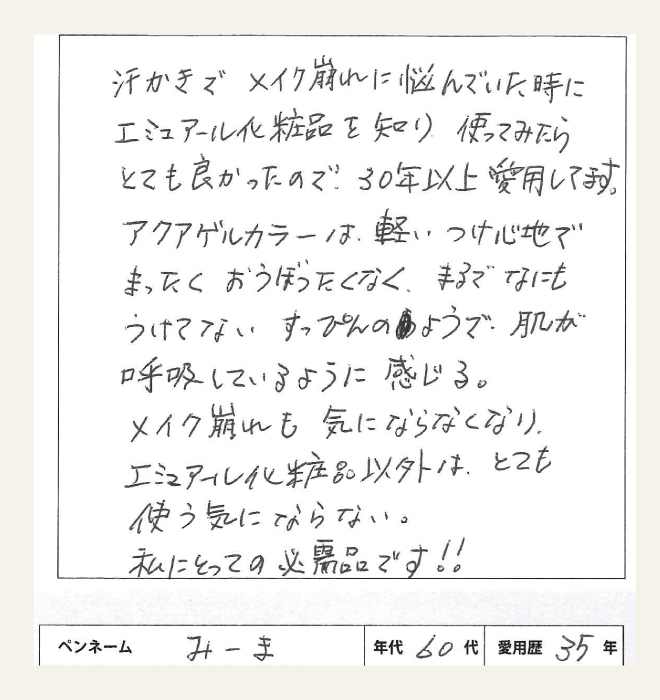 汗かきで メイク崩れに悩んでいた時に
エミュアール化粧品を知り 使ってみたら
とても良かったので、30年以上愛用してます。
アクアゲルカラーは、軽い つけ心地で
まったく おうぼったくなく、まるで なにも
つけてない すっぴんのようで、肌が
呼吸しているように 感じる。
メイク崩れも 気にならなくなり、
エミュアール化粧品以外は、とても
使う気にならない。
私にとっての必需品です!!
ペンネーム みーま 年代 60代 愛用歴 35年